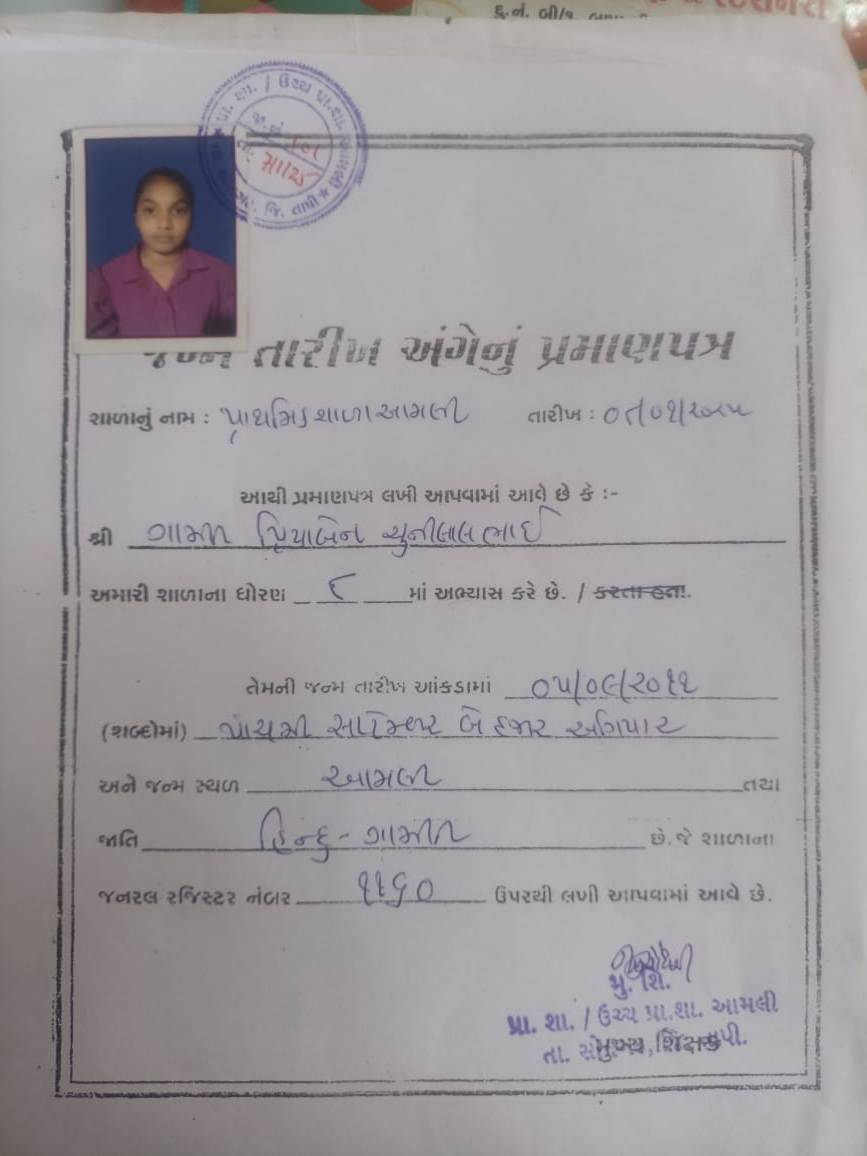 કુ.નં. બી/૧,
પ્રા. શા. / ઉચ્ચ પ્રા.શા. આમલી
જા.નં. ૧૦૧
તા. ૭/૧/૨૫
જિ. તાપી
જન્મ તારીખ અંગેનું પ્રમાણપત્ર
શાળાનું નામ : પ્રાથમિક શાળા આમલી તારીખ : ૦૭/૦૧/૨૦૨૫
આથી પ્રમાણપત્ર લખી આપવામાં આવે છે કે :-
શ્રી ગામીત પ્રિયાબેન ચુનીલાલભાઈ
અમારી શાળાના ધોરણ ૮ માં અભ્યાસ કરે છે. / કરતા હતા.
તેમની જન્મ તારીખ આંકડામાં ૦૫/૦૯/૨૦૧૧
(શબ્દોમાં) પાંચમી સપ્ટેમ્બર બે હજાર અગિયાર
અને જન્મ સ્થળ આમલી તથા
જાતિ હિન્દુ - ગામીત છે. જે શાળાના
જનરલ રજિસ્ટર નંબર ૧૧૬૦ ઉપરથી લખી આપવામાં આવે છે.
મુ. શિ.
પ્રા. શા. / ઉચ્ચ પ્રા.શા. આમલી
તા. મુખ્ય શિક્ષક